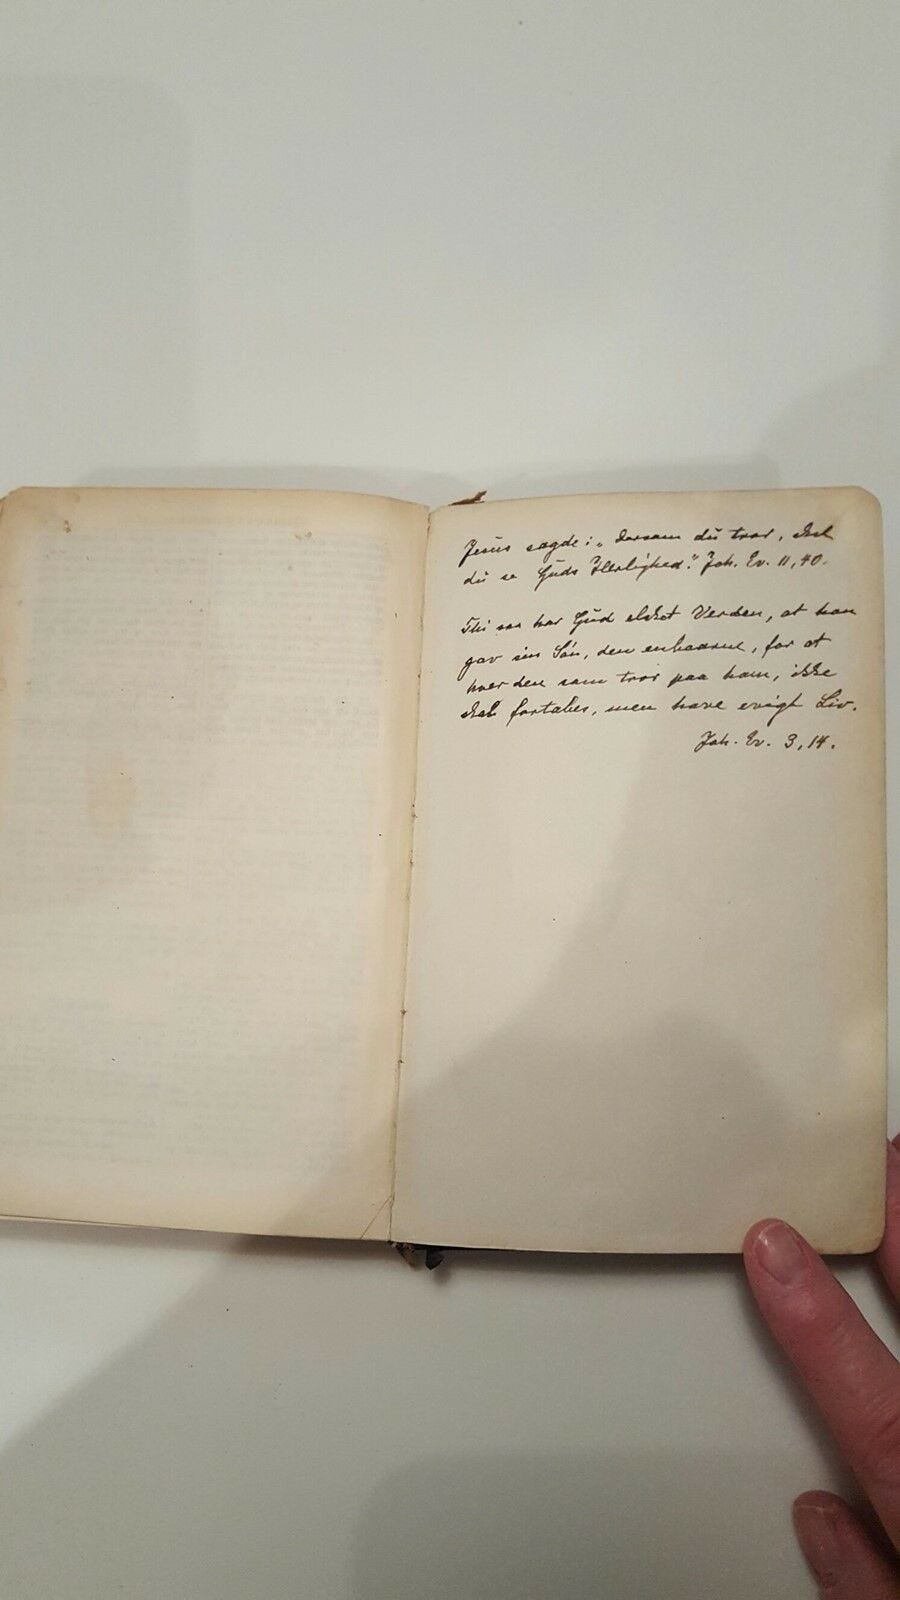 Jesus sagde: „dersom du tror, skal
du se Guds Herlighed." Joh. Ev. 11,40.
Thi saa har Gud elsket Verden, at han
gav sin Søn, den enbaarne, for at
hver den som tror paa ham, ikke
skal fortabes, men have evigt Liv.
Joh. Ev. 3,14.